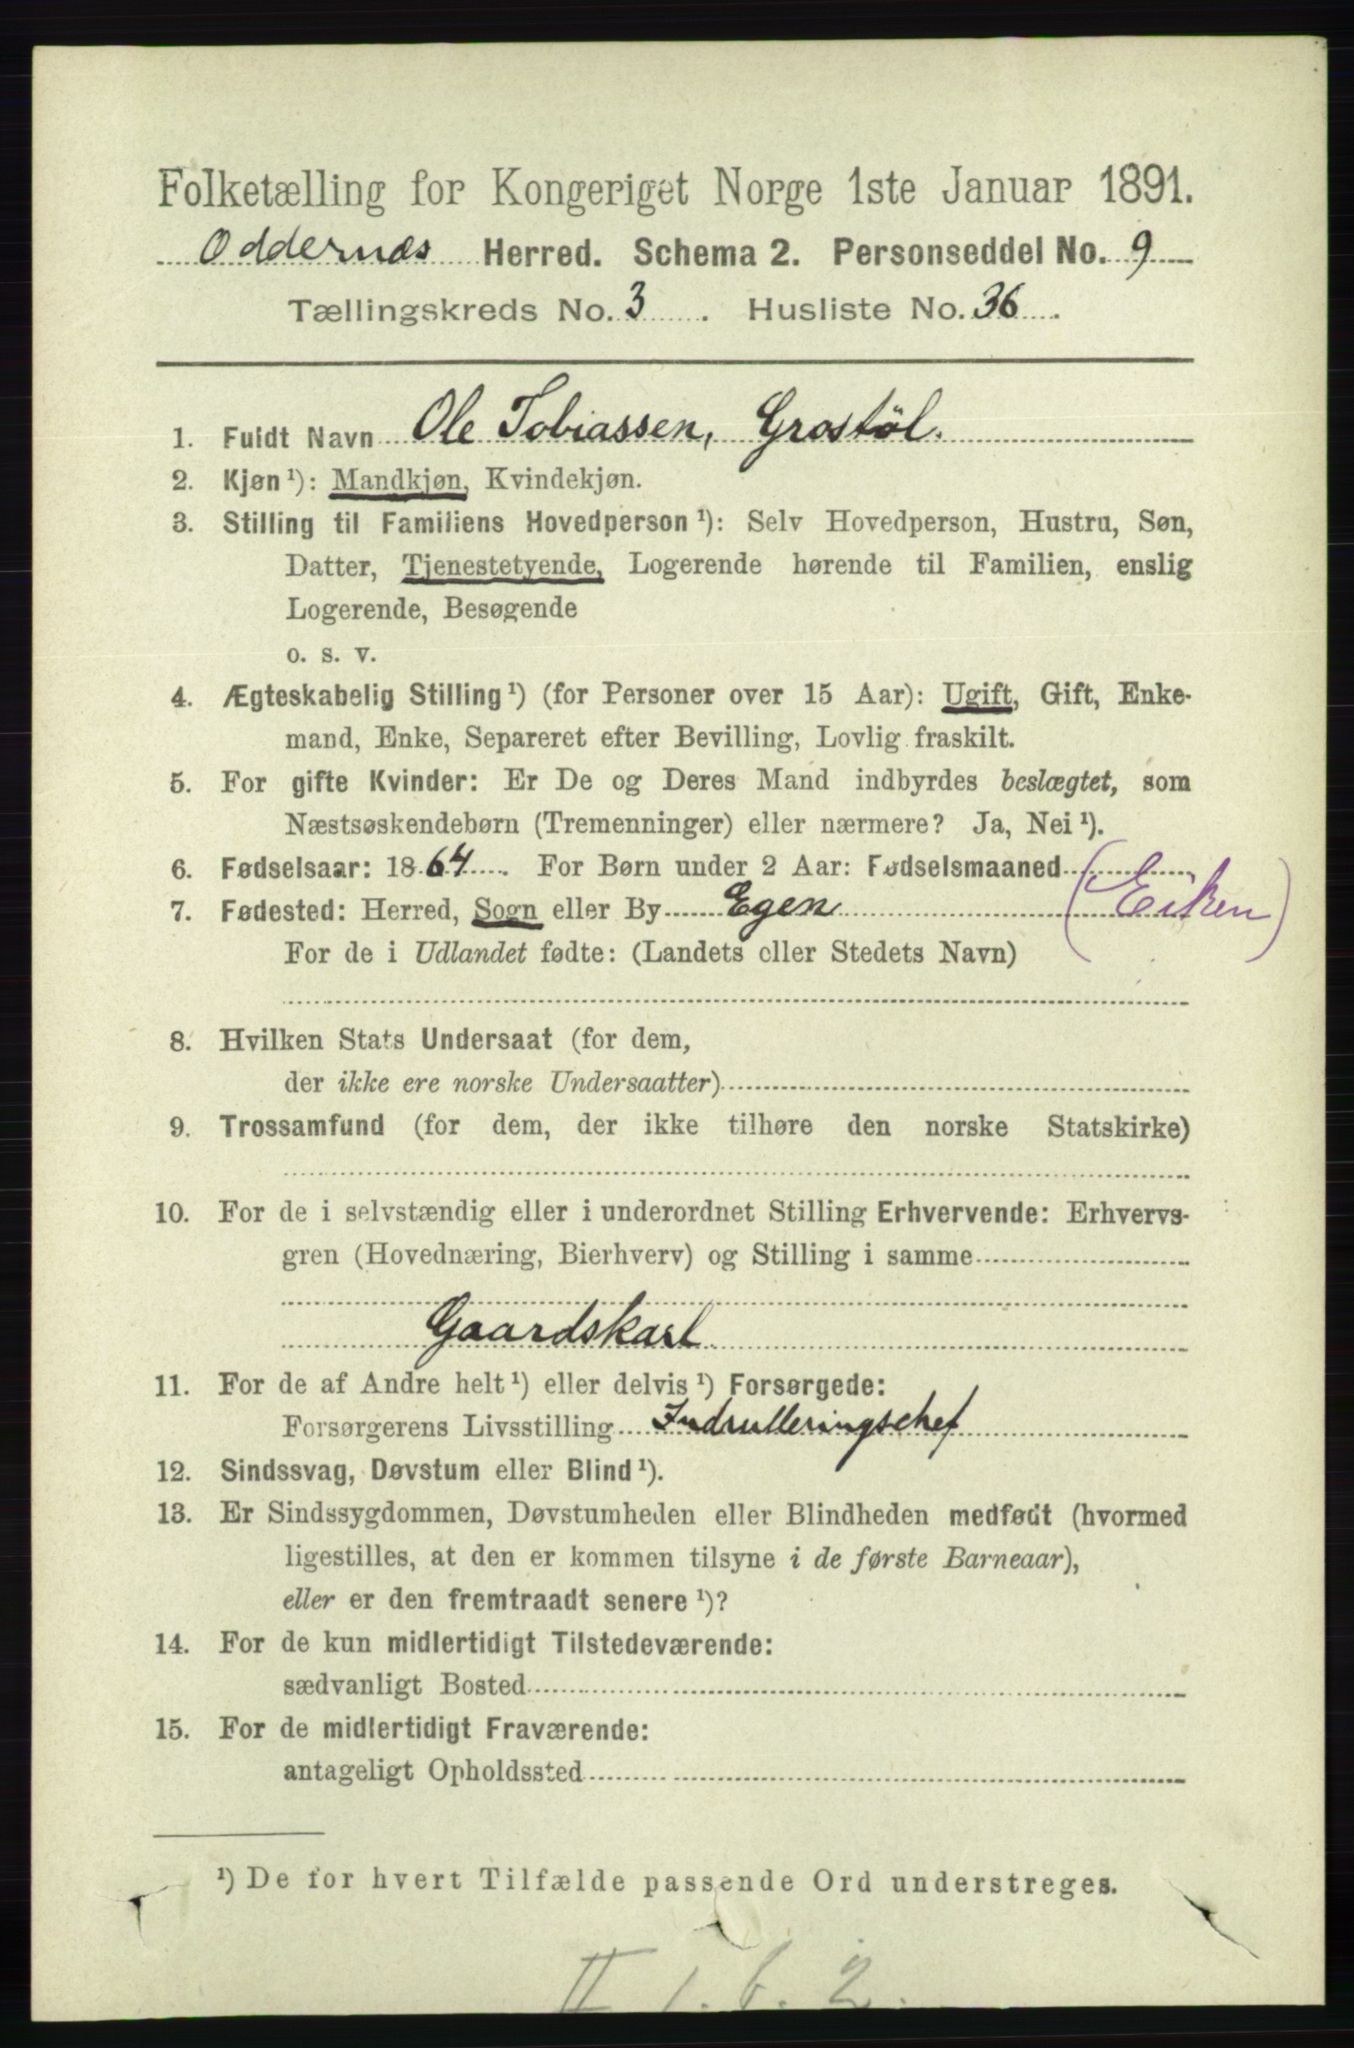 Folketælling for Kongeriget Norge 1ste Januar 1891.
Oddernæs Herred. Schema 2. Personseddel No. 9
Tællingskreds No. 3. Husliste No. 36.
1. Fuldt Navn Ole Tobiassen, Grostöl.
2. Kjøn¹): Mandkjøn, Kvindekjøn.
3. Stilling til Familiens Hovedperson¹): Selv Hovedperson, Hustru, Søn,
Datter, Tjenestetyende, Logerende hørende til Familien, enslig
Logerende, Besøgende
o. s. v.
4. Ægteskabelig Stilling¹) (for Personer over 15 Aar): Ugift, Gift, Enke-
mand, Enke, Separeret efter Bevilling, Lovlig fraskilt.
5. For gifte Kvinder: Er De og Deres Mand indbyrdes beslægtet, som
Næstsøskendebørn (Tremenninger) eller nærmere? Ja, Nei¹).
6. Fødselsaar: 1864. For Børn under 2 Aar: Fødselsmaaned
7. Fødested: Herred, Sogn eller By Egen (Eiken)
For de i Udlandet fødte: (Landets eller Stedets Navn)
8. Hvilken Stats Undersaat (for dem,
der ikke ere norske Undersaatter)
9. Trossamfund (for dem, der ikke tilhøre den norske Statskirke)
10. For de i selvstændig eller i underordnet Stilling Erhvervende: Erhvervs-
gren (Hovednæring, Bierhverv) og Stilling i samme
Gaardskarl
11. For de af Andre helt¹) eller delvis¹) Forsørgede:
Forsørgerens Livsstilling Indrulleringschef
12. Sindssvag, Døvstum eller Blind¹).
13. Er Sindssygdommen, Døvstumheden eller Blindheden medfødt (hvormed
ligestilles, at den er kommen tilsyne i de første Barneaar),
eller er den fremtraadt senere¹)?
14. For de kun midlertidigt Tilstedeværende:
sædvanligt Bosted
15. For de midlertidigt Fraværende:
antageligt Opholdssted
¹) De for hvert Tilfælde passende Ord understreges.
II 1. 6. 2.